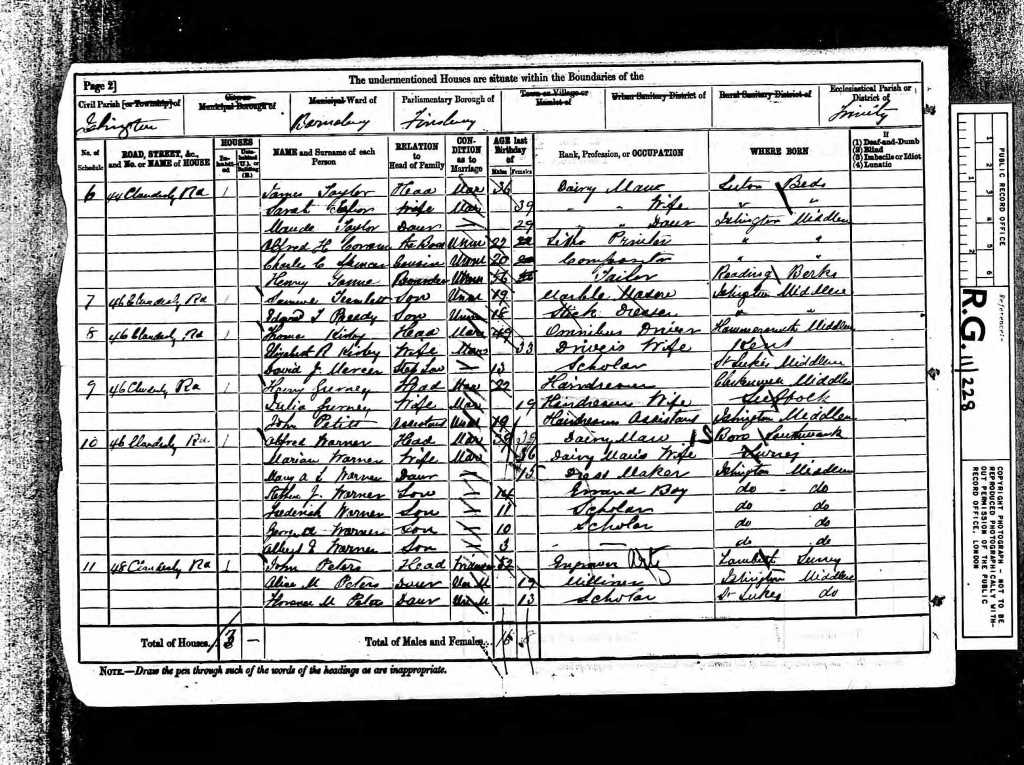 The undermentioned Houses are situate within the Boundaries of the
Page 2]
Civil Parish [or Township] of
City or Municipal Borough of
Municipal Ward of
Parliamentary Borough of
Town or Village or Hamlet of
Urban Sanitary District of
Rural Sanitary District of
Ecclesiastical Parish or District of
Islington Barnsbury Finsbury Trinity
No. of Schedule
ROAD, STREET, &c., and No. or NAME of HOUSE
HOUSES
Inhabited
Uninhabited (U.), or Building (B.)
NAME and Surname of each Person
RELATION to Head of Family
CONDITION as to Marriage
AGE last Birthday of
Males Females
Rank, Profession, or OCCUPATION
WHERE BORN
If
(1) Deaf-and-Dumb
(2) Blind
(3) Imbecile or Idiot
(4) Lunatic
6 44 Rd 1 James Taylor Head Mar 36 Dairy Man Beds
Sarah Taylor Wife Mar 39 " Wife " "
Maude Taylor Daur 29 " Daur Islington Middlex
Alfred H Unm 22 Litho Printer " "
Charles C Spencer Unm 20 Compositor " "
Henry Boarder 56 Tailor Reading Berks
7 46 Rd 1 Son Unm 19 Marble Mason Islington Middlex
Edward T Son Unm 18 Stick Dresser " "
8 46 Rd 1 Thomas Kirby Head Mar 49 Omnibus Driver Hammersmith Middlex
Elizabeth R Kirby Wife Mar 33 Driver's Wife Kent
David J Mercer Step Son 13 Scholar St Lukes Middlex
9 46 Rd 1 Harry Gurney Head Mar 22 Hairdresser Clerkenwell Middlex
Julia Gurney Wife Mar 19 Hairdressers Wife Suffolk
John Assistant Unm 19 Hairdressers Assistant Islington Middlex
10 46 Rd 1 Alfred Warner Head Mar 39 Dairy Man Boro Southwark
Marian Warner Wife Mar 36 Dairy Man's Wife Surrey
Mary A L Warner Daur 15 Dress Maker Islington Middlex
J Warner Son 14 Errand Boy do - do
Frederick Warner Son 11 Scholar do do
George A Warner Son 10 Scholar do do
Albert E Warner Son 3 — do do
11 48 Rd 1 John Peters Head Widower 52 Engraver Arts Lambeth Surrey
Alice M Peters Daur Un M 19 Milliner Islington Middlex
Florence M Peters Daur Un M 13 Scholar St Lukes do
Total of Houses 3 —
Total of Males and Females 16 8
NOTE.—Draw the pen through such of the words of the headings as are inappropriate.
PUBLIC RECORD OFFICE
1 2 3 4 5 6
Reference:-
R.G. 11/228
COPYRIGHT PHOTOGRAPH - NOT TO BE
REPRODUCED PHOTOGRAPHICALLY WITH-
OUT PERMISSION OF THE PUBLIC
RECORD OFFICE, LONDON